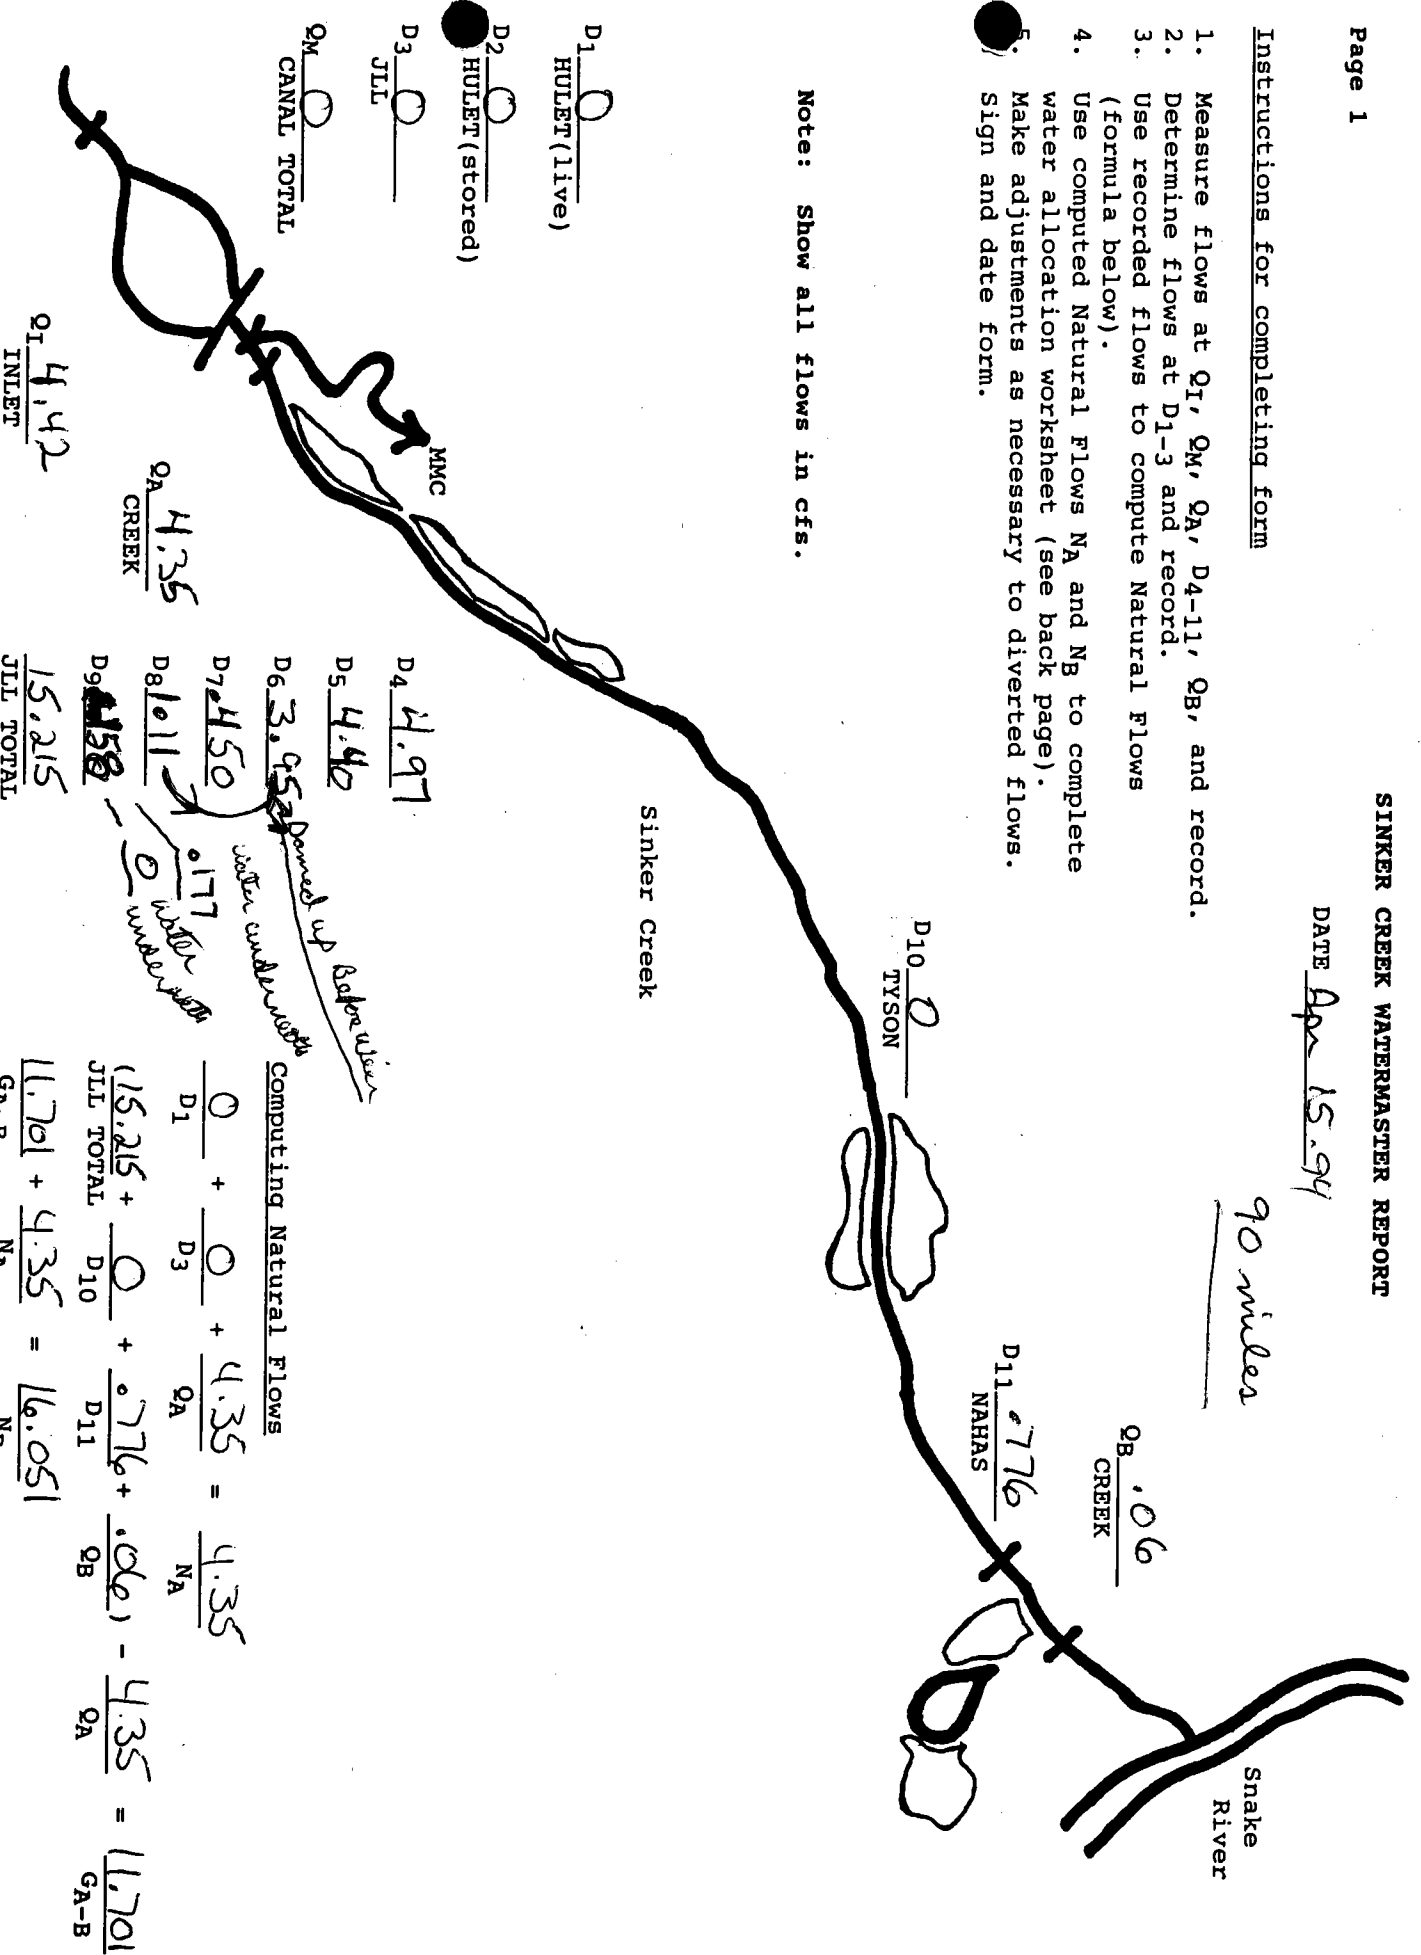 SINKER CREEK WATERMASTER REPORT
Page 1
DATE Apr 15.94
90 miles
Instructions for completing form
1. Measure flows at QI, QM, QA, D4-11, QB, and record.
2. Determine flows at D1-3 and record.
3. Use recorded flows to compute Natural Flows
(formula below).
4. Use computed Natural Flows NA and NB to complete
water allocation worksheet (see back page).
5. Make adjustments as necessary to diverted flows.
Sign and date form.
Note: Show all flows in cfs.
QB .06
CREEK
Snake
River
D11 .776
NAHAS
D10 0
TYSON
Sinker Creek
D1 0
HULET(live)
D2 0
HULET(stored)
D3 0
JLL
QM 0
CANAL TOTAL
MMC
QI 4.42
INLET
QA 4.35
CREEK
D4 4.97
D5 4.40
D6 3.95
Damed up Before Weir
D7 .450
water underneath
D8 1.011
.177
D9 .458 - 0 water
underneath
15.215
JLL TOTAL
Computing Natural Flows
0 + 0 + 4.35 = 4.35
D1 D3 QA NA
(15.215 + 0 + .776 + .06) - 4.35 = 11.701
JLL TOTAL D10 D11 QB QA GA-B
11.701 + 4.35 = 16.051
GA-B NA NB